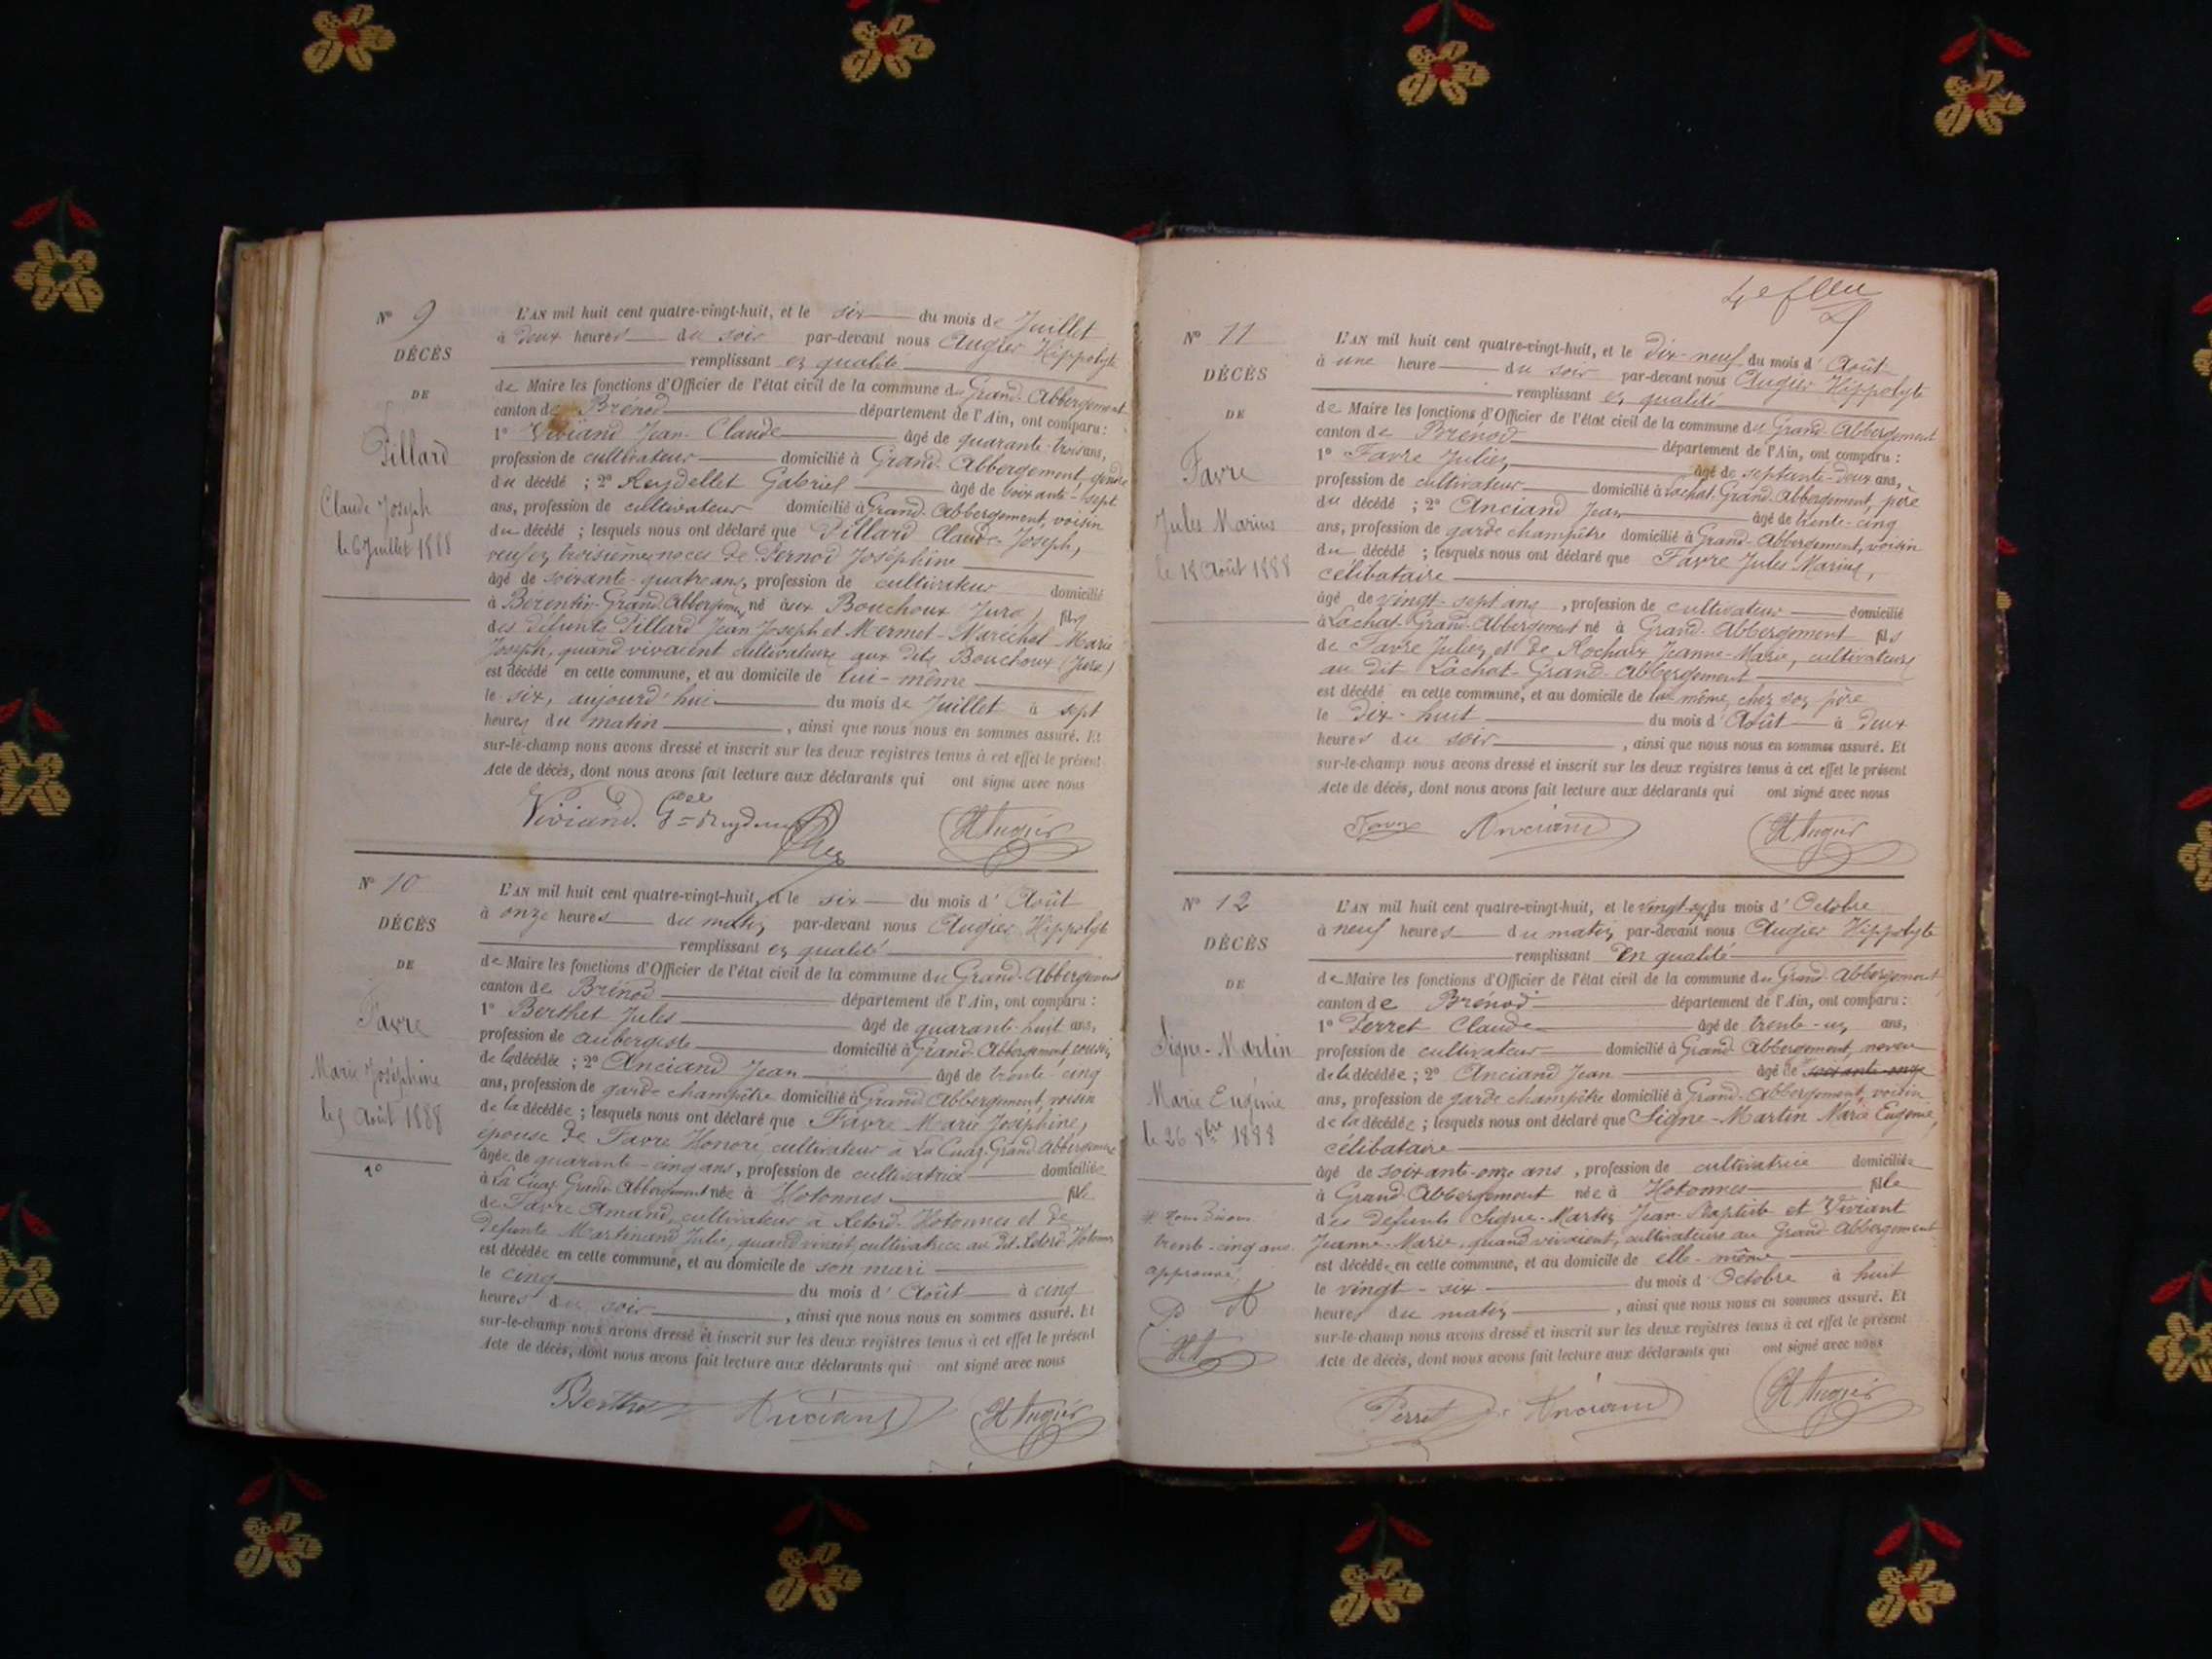 N° 9
DÉCÈS
DE
Pillard
Claude Joseph
le 6 Juillet 1888
L'AN mil huit cent quatre-vingt-huit, et le six du mois de Juillet
à deux heures du soir par-devant nous Augier Hippolyte
remplissant en qualité
de Maire les fonctions d'Officier de l'état civil de la commune du Grand-Abbergement
canton de Brénod département de l'Ain, ont comparu :
1° Viviand Jean-Claude âgé de quarante-trois ans,
profession de cultivateur domicilié à Grand-Abbergement, gendre
du décédé ; 2° Reydellet Gabriel âgé de soixante-sept
ans, profession de cultivateur domicilié à Grand-Abbergement, voisin
du décédé ; lesquels nous ont déclaré que Pillard Claude-Joseph,
veuf en troisièmes noces de Pernod Joséphine
âgé de soixante-quatre ans, profession de cultivateur domicilié
à Bérentin-Grand-Abbergement né aux Bouchoux (Jura) fils
des défunts Pillard Jean Joseph et Mermet-Maréchal Marie
Joseph, quand vivaient cultivateurs aux dits Bouchoux (Jura)
est décédé en cette commune, et au domicile de lui-même
le six, aujourd'hui du mois de Juillet à sept
heures du matin, ainsi que nous nous en sommes assuré. Et
sur-le-champ nous avons dressé et inscrit sur les deux registres tenus à cet effet le présent
Acte de décès, dont nous avons fait lecture aux déclarants qui ont signé avec nous
Viviand HAugier
N° 10
DÉCÈS
DE
Favre
Marie Joséphine
le 5 Août 1888
1°
L'AN mil huit cent quatre-vingt-huit, et le six du mois d'Août
à onze heures du matin par-devant nous Augier Hippolyte
remplissant en qualité
de Maire les fonctions d'Officier de l'état civil de la commune du Grand-Abbergement
canton de Brénod département de l'Ain, ont comparu :
1° Berthet Jules âgé de quarante-huit ans,
profession de aubergiste domicilié à Grand-Abbergement, cousin
de la décédée ; 2° Anciand Jean âgé de trente-cinq
ans, profession de garde champêtre domicilié à Grand-Abbergement, voisin
de la décédée ; lesquels nous ont déclaré que Favre Marie Joséphine,
épouse de Favre Honoré, cultivateur à La Cuaz-Grand-Abbergement
âgée de quarante-cinq ans, profession de cultivatrice domiciliée
à La Cuaz Grand-Abbergement née à Hotonnes fille
de Favre Amand, cultivateur à Retord-Hotonnes et de
défunte Martinand Julie, quand vivait, cultivatrice au dit Retord Hotonnes
est décédée en cette commune, et au domicile de son mari
le cinq du mois d'Août à cinq
heures du soir, ainsi que nous nous en sommes assuré. Et
sur-le-champ nous avons dressé et inscrit sur les deux registres tenus à cet effet le présent
Acte de décès, dont nous avons fait lecture aux déclarants qui ont signé avec nous
Berthet Anciand HAugier
N° 11
DÉCÈS
DE
Favre
Jules Marius
le 18 Août 1888
L'AN mil huit cent quatre-vingt-huit, et le dix-neuf du mois d'Août
à une heure du soir par-devant nous Augier Hippolyte
remplissant en qualité
de Maire les fonctions d'Officier de l'état civil de la commune du Grand-Abbergement
canton de Brénod département de l'Ain, ont comparu :
1° Favre Julien âgé de septante-deux ans,
profession de cultivateur domicilié à Lachat-Grand-Abbergement, père
du décédé ; 2° Anciand Jean âgé de trente-cinq
ans, profession de garde champêtre domicilié à Grand-Abbergement, voisin
du décédé ; lesquels nous ont déclaré que Favre Jules Marius,
célibataire
âgé de vingt-sept ans, profession de cultivateur domicilié
à Lachat-Grand-Abbergement né à Grand-Abbergement fils
de Favre Julien et de Rochaix Jeanne-Marie, cultivateurs
au dit Lachat-Grand-Abbergement
est décédé en cette commune, et au domicile de lui-même, chez son père
le dix-huit du mois d'Août à deux
heures du soir, ainsi que nous nous en sommes assuré. Et
sur-le-champ nous avons dressé et inscrit sur les deux registres tenus à cet effet le présent
Acte de décès, dont nous avons fait lecture aux déclarants qui ont signé avec nous
Favre Anciand HAugier
N° 12
DÉCÈS
DE
Signe-Martin
Marie Eugénie
le 26 8bre 1888
trente-cinq ans.
approuvé
L'AN mil huit cent quatre-vingt-huit, et le vingt-six du mois d'Octobre
à neuf heures du matin par-devant nous Augier Hippolyte
remplissant en qualité
de Maire les fonctions d'Officier de l'état civil de la commune du Grand-Abbergement
canton de Brénod département de l'Ain, ont comparu :
1° Perret Claude âgé de trente-un ans,
profession de cultivateur domicilié à Grand-Abbergement, neveu
de la décédée ; 2° Anciand Jean âgé de soixante-onze
ans, profession de garde champêtre domicilié à Grand-Abbergement, voisin
de la décédée ; lesquels nous ont déclaré que Signe-Martin Marie Eugénie,
célibataire
âgé de soixante-onze ans, profession de cultivatrice domiciliée
à Grand-Abbergement née à Hotonnes fille
des défunts Signe-Martin Jean-Baptiste et Viviant
Jeanne-Marie, quand vivaient, cultivateurs au Grand-Abbergement
est décédée en cette commune, et au domicile de elle-même
le vingt-six du mois d'Octobre à huit
heures du matin, ainsi que nous nous en sommes assuré. Et
sur-le-champ nous avons dressé et inscrit sur les deux registres tenus à cet effet le présent
Acte de décès, dont nous avons fait lecture aux déclarants qui ont signé avec nous
Perret Anciand HAugier